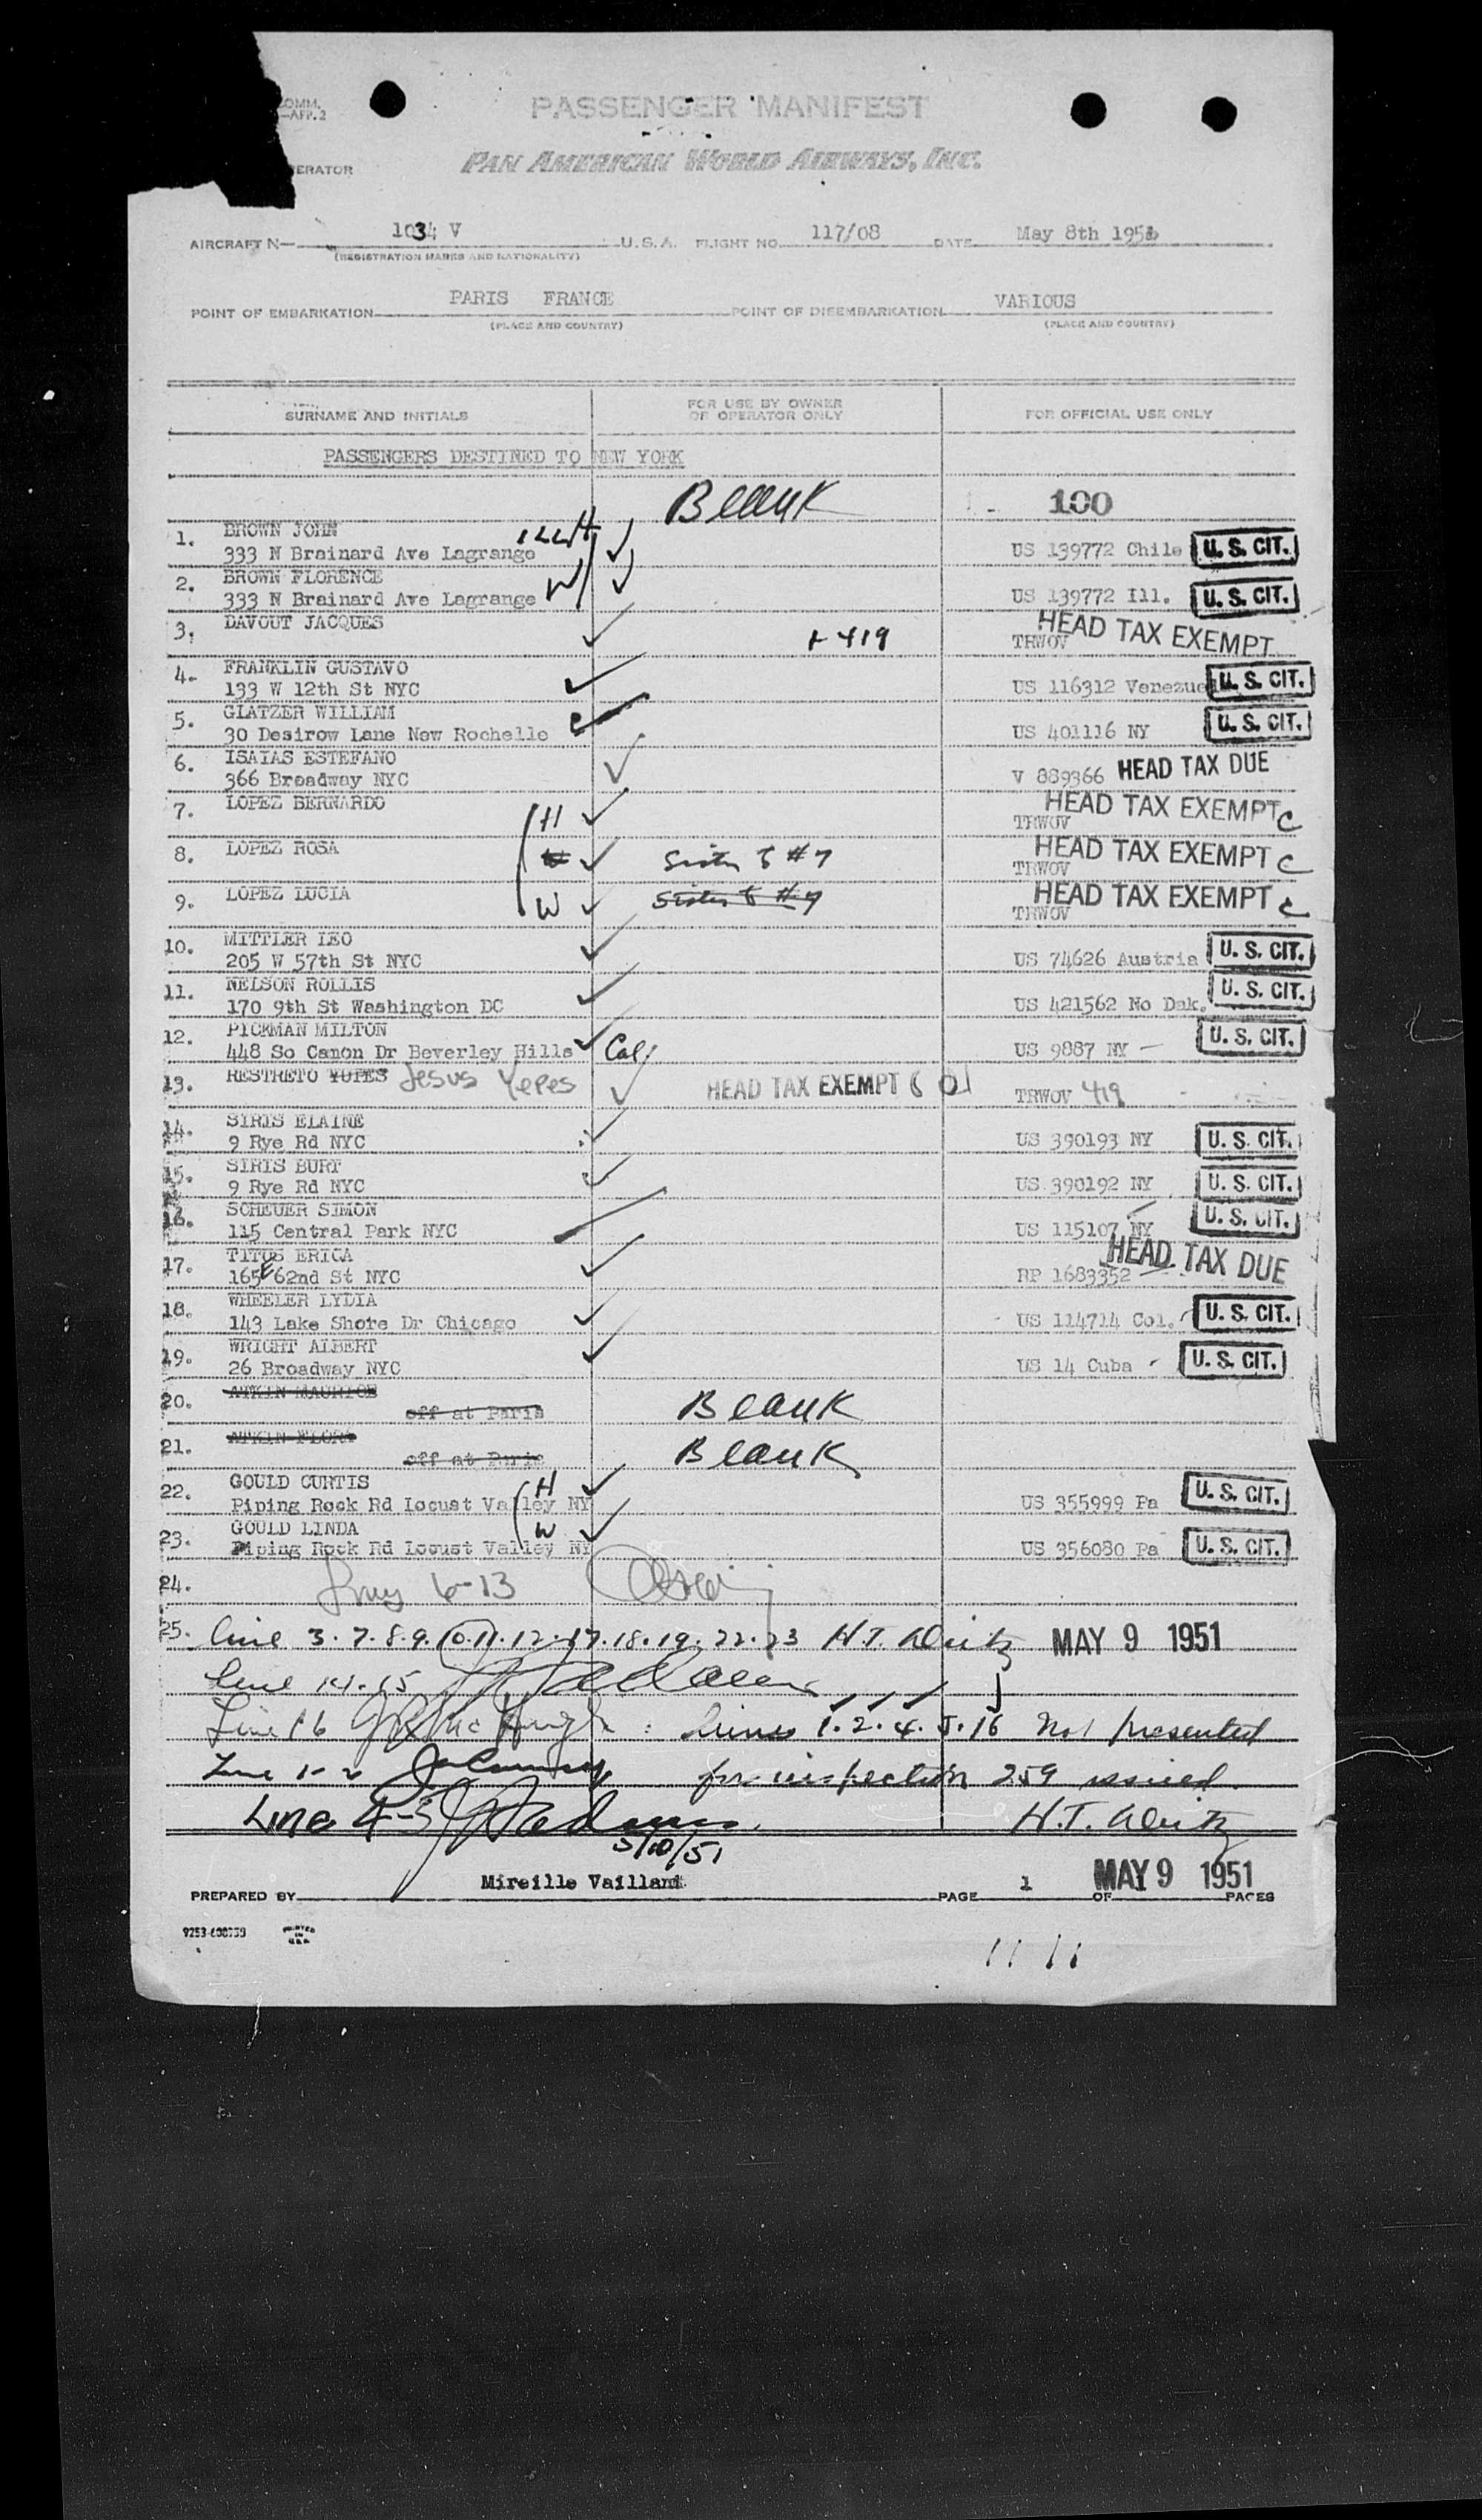 COMM.
—APP.2
PASSENGER MANIFEST
ERATOR
PAN AMERICAN WORLD AIRWAYS, INC.
AIRCRAFT N— 1034 V U.S.A. FLIGHT NO. 117/08 DATE May 8th 1951
(REGISTRATION MARKS AND NATIONALITY)
POINT OF EMBARKATION PARIS FRANCE POINT OF DISEMBARKATION VARIOUS
(PLACE AND COUNTRY) (PLACE AND COUNTRY)
SURNAME AND INITIALS FOR USE BY OWNER OR OPERATOR ONLY FOR OFFICIAL USE ONLY
PASSENGERS DESTINED TO NEW YORK
Blank 100
1. BROWN JOHN ILL H
333 N Brainard Ave Lagrange US 139772 Chile U. S. CIT.
2. BROWN FLORENCE W
333 N Brainard Ave Lagrange US 139772 Ill. U. S. CIT.
3. DAVOUT JACQUES 419 TRWOV HEAD TAX EXEMPT
4. FRANKLIN GUSTAVO
133 W 12th St NYC US 116312 Venezue U. S. CIT.
5. GLATZER WILLIAM
30 Desirow Lane New Rochelle US 401116 NY U. S. CIT.
6. ISAIAS ESTEFANO
366 Broadway NYC V 889366 HEAD TAX DUE
7. LOPEZ BERNARDO H TRWOV HEAD TAX EXEMPT C
8. LOPEZ ROSA Sister to #7 TRWOV HEAD TAX EXEMPT C
9. LOPEZ LUCIA W Sister to #7 TRWOV HEAD TAX EXEMPT C
10. MITTLER LEO
205 W 57th St NYC US 74626 Austria U. S. CIT.
11. NELSON ROLLIS
170 9th St Washington DC US 421562 No Dak. U. S. CIT.
12. PICKMAN MILTON
448 So Canon Dr Beverley Hills Cal. US 9887 NY U. S. CIT.
13. RESTRETO YUPES Jesus Yepes HEAD TAX EXEMPT TRWOV 419
14. SIRIS ELAINE
9 Rye Rd NYC US 390193 NY U. S. CIT.
15. SIRIS BURT
9 Rye Rd NYC US 390192 NY U. S. CIT.
16. SCHEUER SIMON
115 Central Park NYC US 115107 NY U. S. CIT.
17. TITUS ERICA
165 E 62nd St NYC RP 1683352 HEAD TAX DUE
18. WHEELER LYDIA
143 Lake Shore Dr Chicago US 114714 Col. U. S. CIT.
19. WRIGHT ALBERT
26 Broadway NYC US 14 Cuba U. S. CIT.
20. ATKIN MAURICE
off at Paris Blank
21. ATKIN FLORA
off at Paris Blank
22. GOULD CURTIS H
Piping Rock Rd Locust Valley NY US 355999 Pa U. S. CIT.
23. GOULD LINDA W
Piping Rock Rd Locust Valley NY US 356080 Pa U. S. CIT.
24. 6-13
25. Line 3.7.8.9.10.11.12.17.18.19.22.23 H.T. MAY 9 1951
Line 14.15
Line 16 : Lines 1.2.4.5.16 Not presented
Line 1-2 for inspection 259 issued.
Line 4-5 H.T.
5/10/51
PREPARED BY Mireille Vaillant PAGE 1 OF PAGES MAY 9 1951
PRINTED
IN
U.S.A.